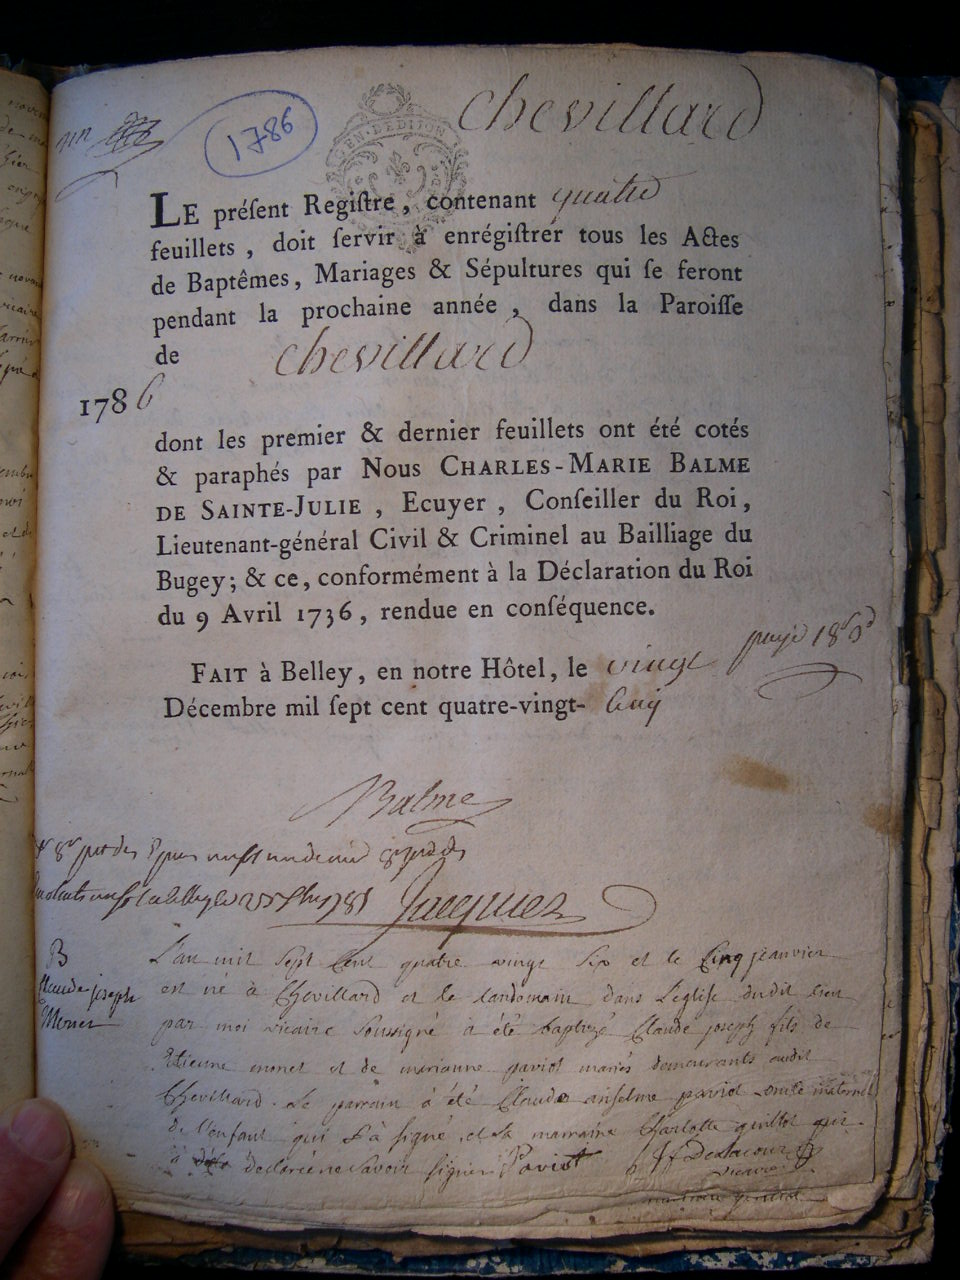 Chevillard
1786
GEN. DE DIJON
LE préſent Regiſtre, contenant quatre
feuillets, doit ſervir à enrégiſtrer tous les Actes
de Baptêmes, Mariages & Sépultures qui ſe feront
pendant la prochaine année, dans la Paroiſſe
de Chevillard
1786
dont les premier & dernier feuillets ont été cotés
& paraphés par Nous CHARLES-MARIE BALME
DE SAINTE-JULIE, Ecuyer, Conſeiller du Roi,
Lieutenant-général Civil & Criminel au Bailliage du
Bugey; & ce, conformément à la Déclaration du Roi
du 9 Avril 1736, rendue en conſéquence.
payé 18
FAIT à Belley, en notre Hôtel, le vingt
Décembre mil ſept cent quatre-vingt- cinq
Balme
Jacquier
B
Claude joseph
Monet
L'an mil sept cent quatre vingt six et le cinq janvier
est né à Chevillard et le landemain dans l'eglise dudit lieu
par moi vicaire soussigné à été baptizé Claude joseph fils de
Etienne monet et de marianne paviot mariés demeurants audit
Chevillard. Le parrain à été Claude anselme paviot oncle maternel
de l'enfant qui s'à signé et la marraine Charlotte guillot qui
à declaré ne savoir signer Paviot
vicaire